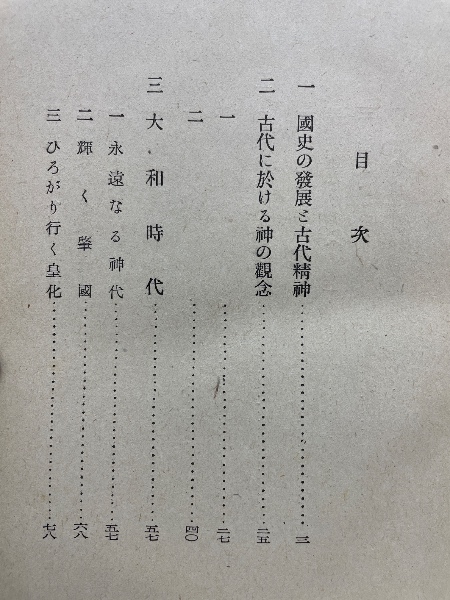 目次
一 國史の發展と古代精神 三
二 古代に於ける神の觀念 二五
一 二七
二 四〇
三 大和時代 五七
一 永遠なる神代 五七
二 輝く肇國 六八
三 ひろがり行く皇化 七八